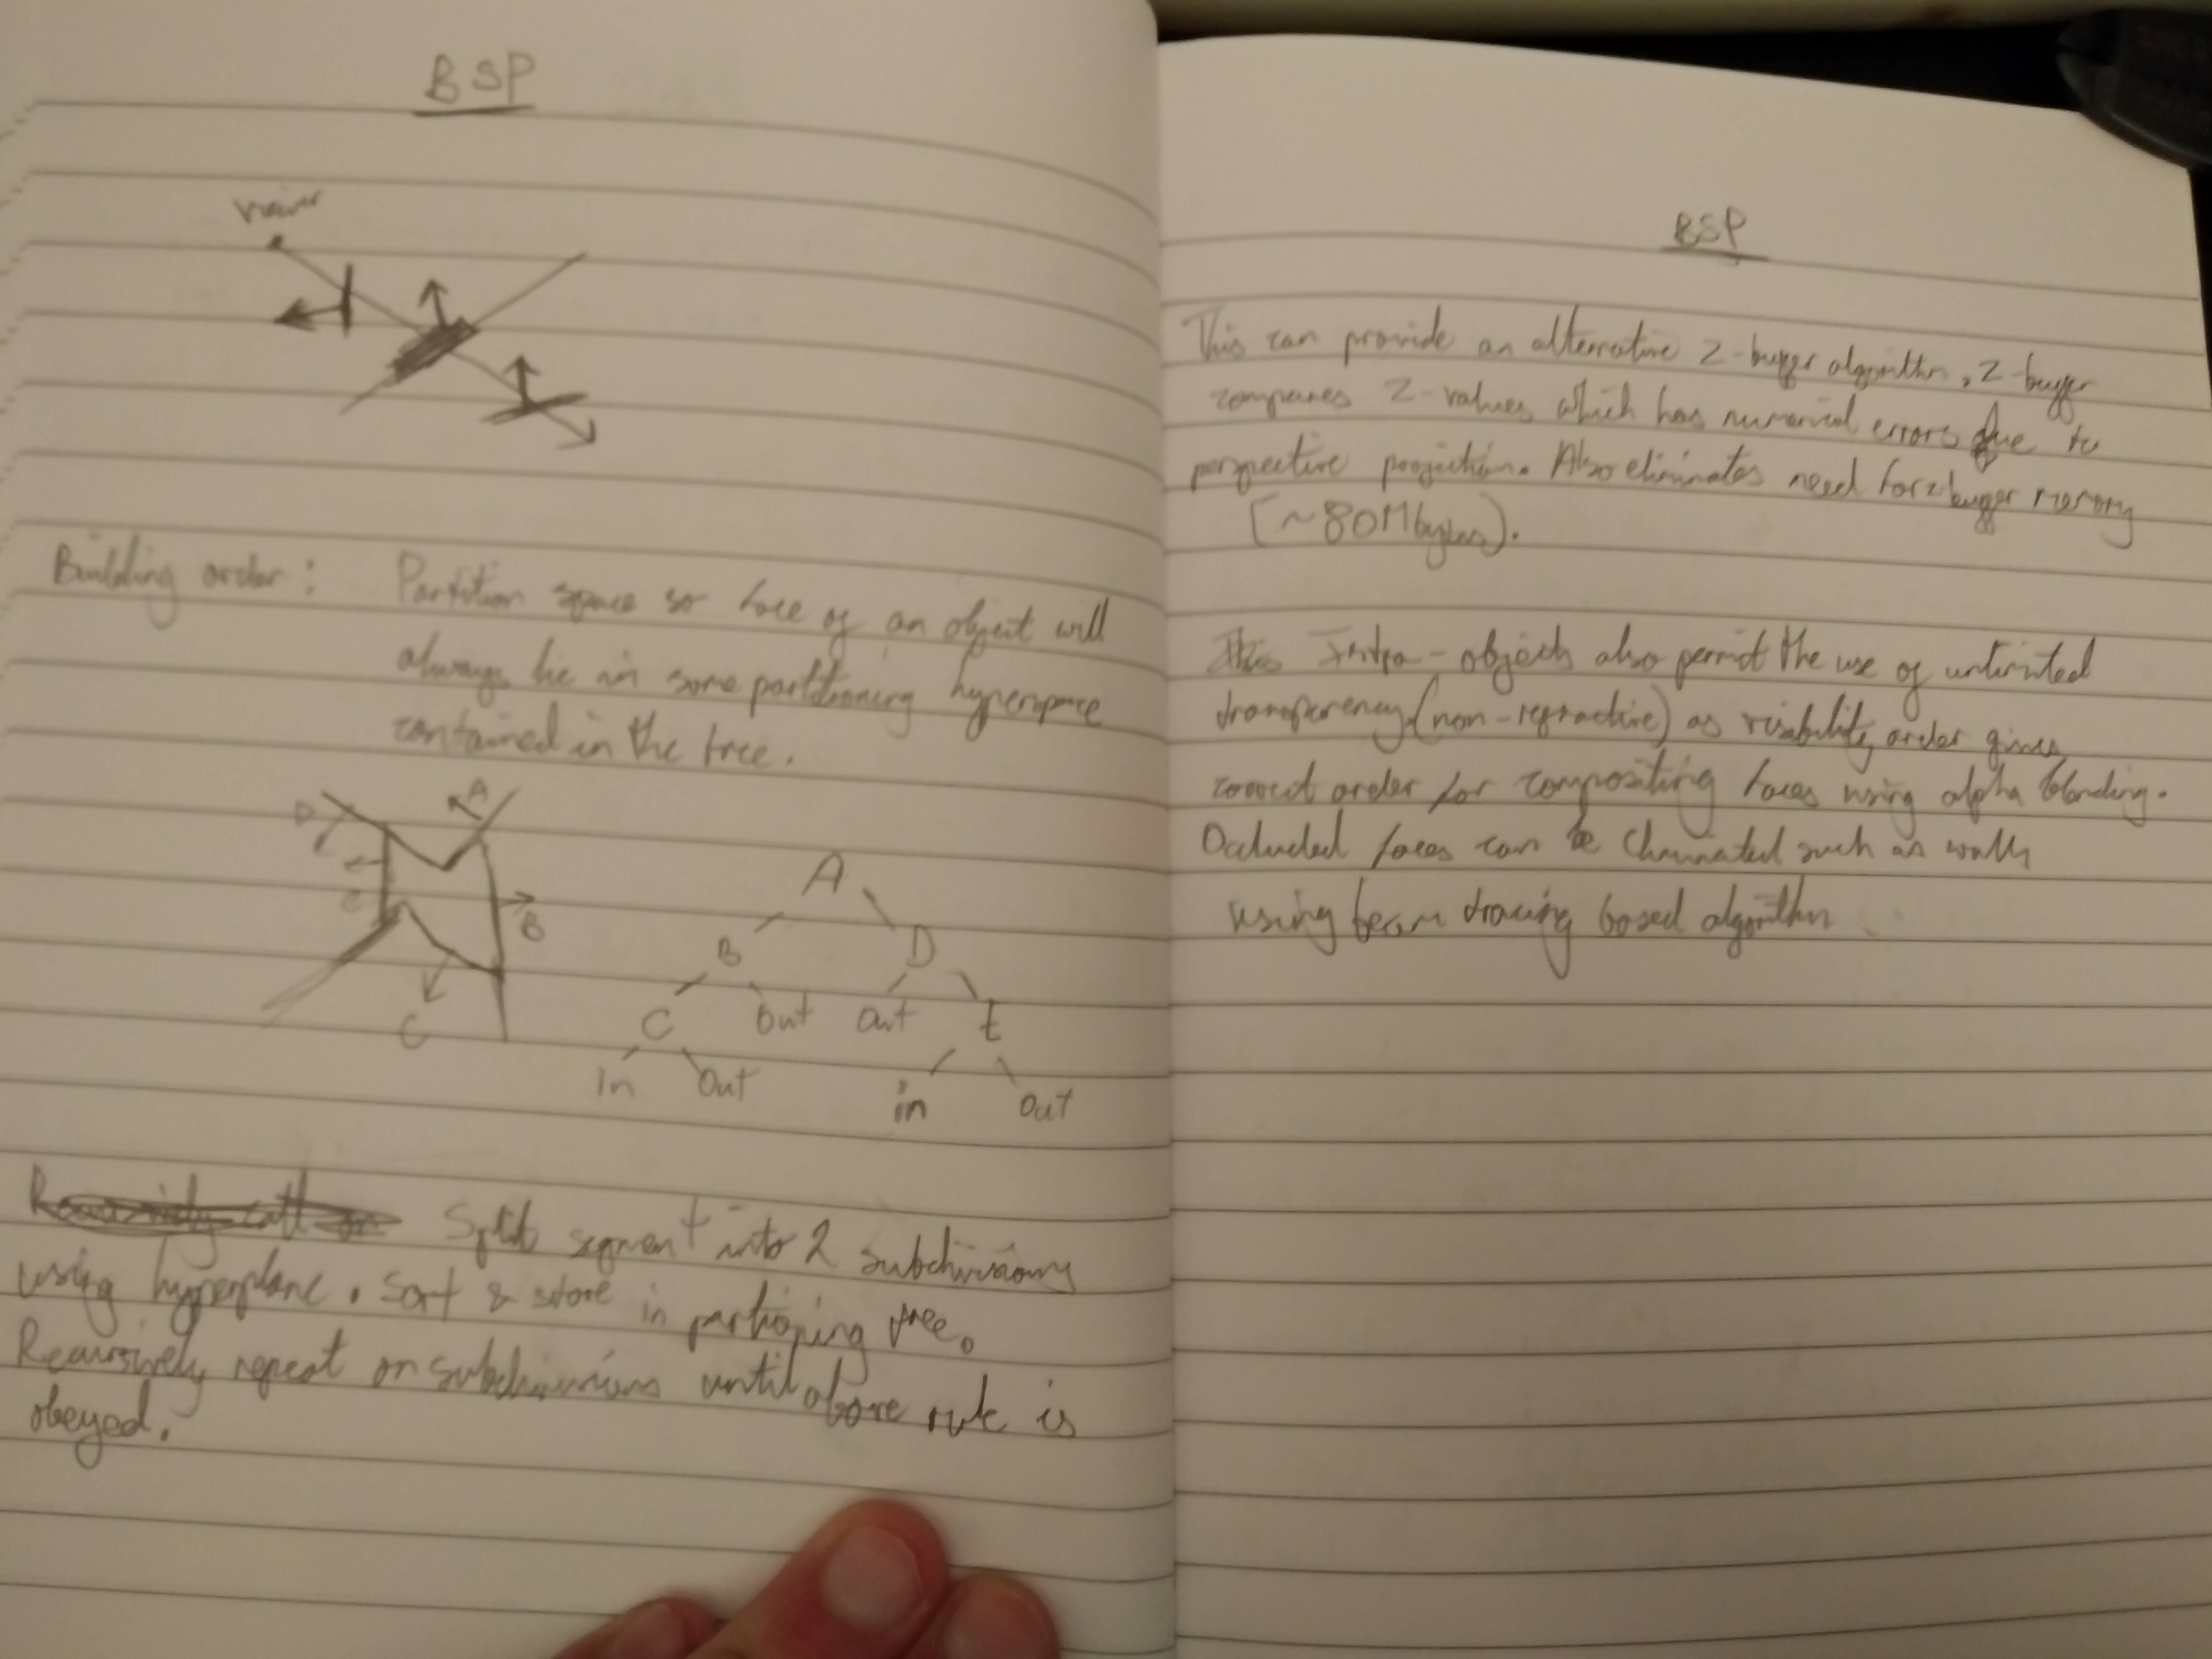 BSP
viewer
Building order : Partition space so face of an object will
always lie in some partitioning hyperspace
contained in the tree.
D A
E B
C
A
B D
C Out Out E
in Out in Out
Split segment into 2 subdivisions
using hyperplane. Sort & store in partioning tree.
Recursively repeat on subdivisions until above rule is
obeyed.
BSP
This can provide an alternative Z-buffer algorithm, Z-buffer
compares Z-values which has numerical errors due to
perspective projection. Also eliminates need for z buffer memory
(~80Mbytes).
Intra-objects also permit the use of unlimited
transparency (non-refractive) as visibility order gives
correct order for compositing faces using alpha blending.
Occluded faces can be such as walls
using beam tracing based algorithm